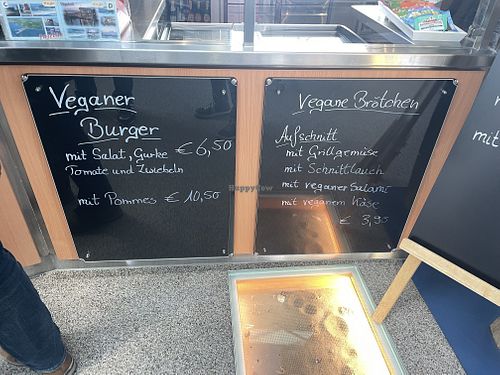 Veganer
Burger
mit Salat, Gurke € 6,50
Tomate und Zwiebeln
mit Pommes € 10,50
Vegane Brötchen
Aufschnitt
mit Grillgemüse
mit Schnittlauch
mit veganer Salami
mit veganem Käse
€ 3,90
HappyCow